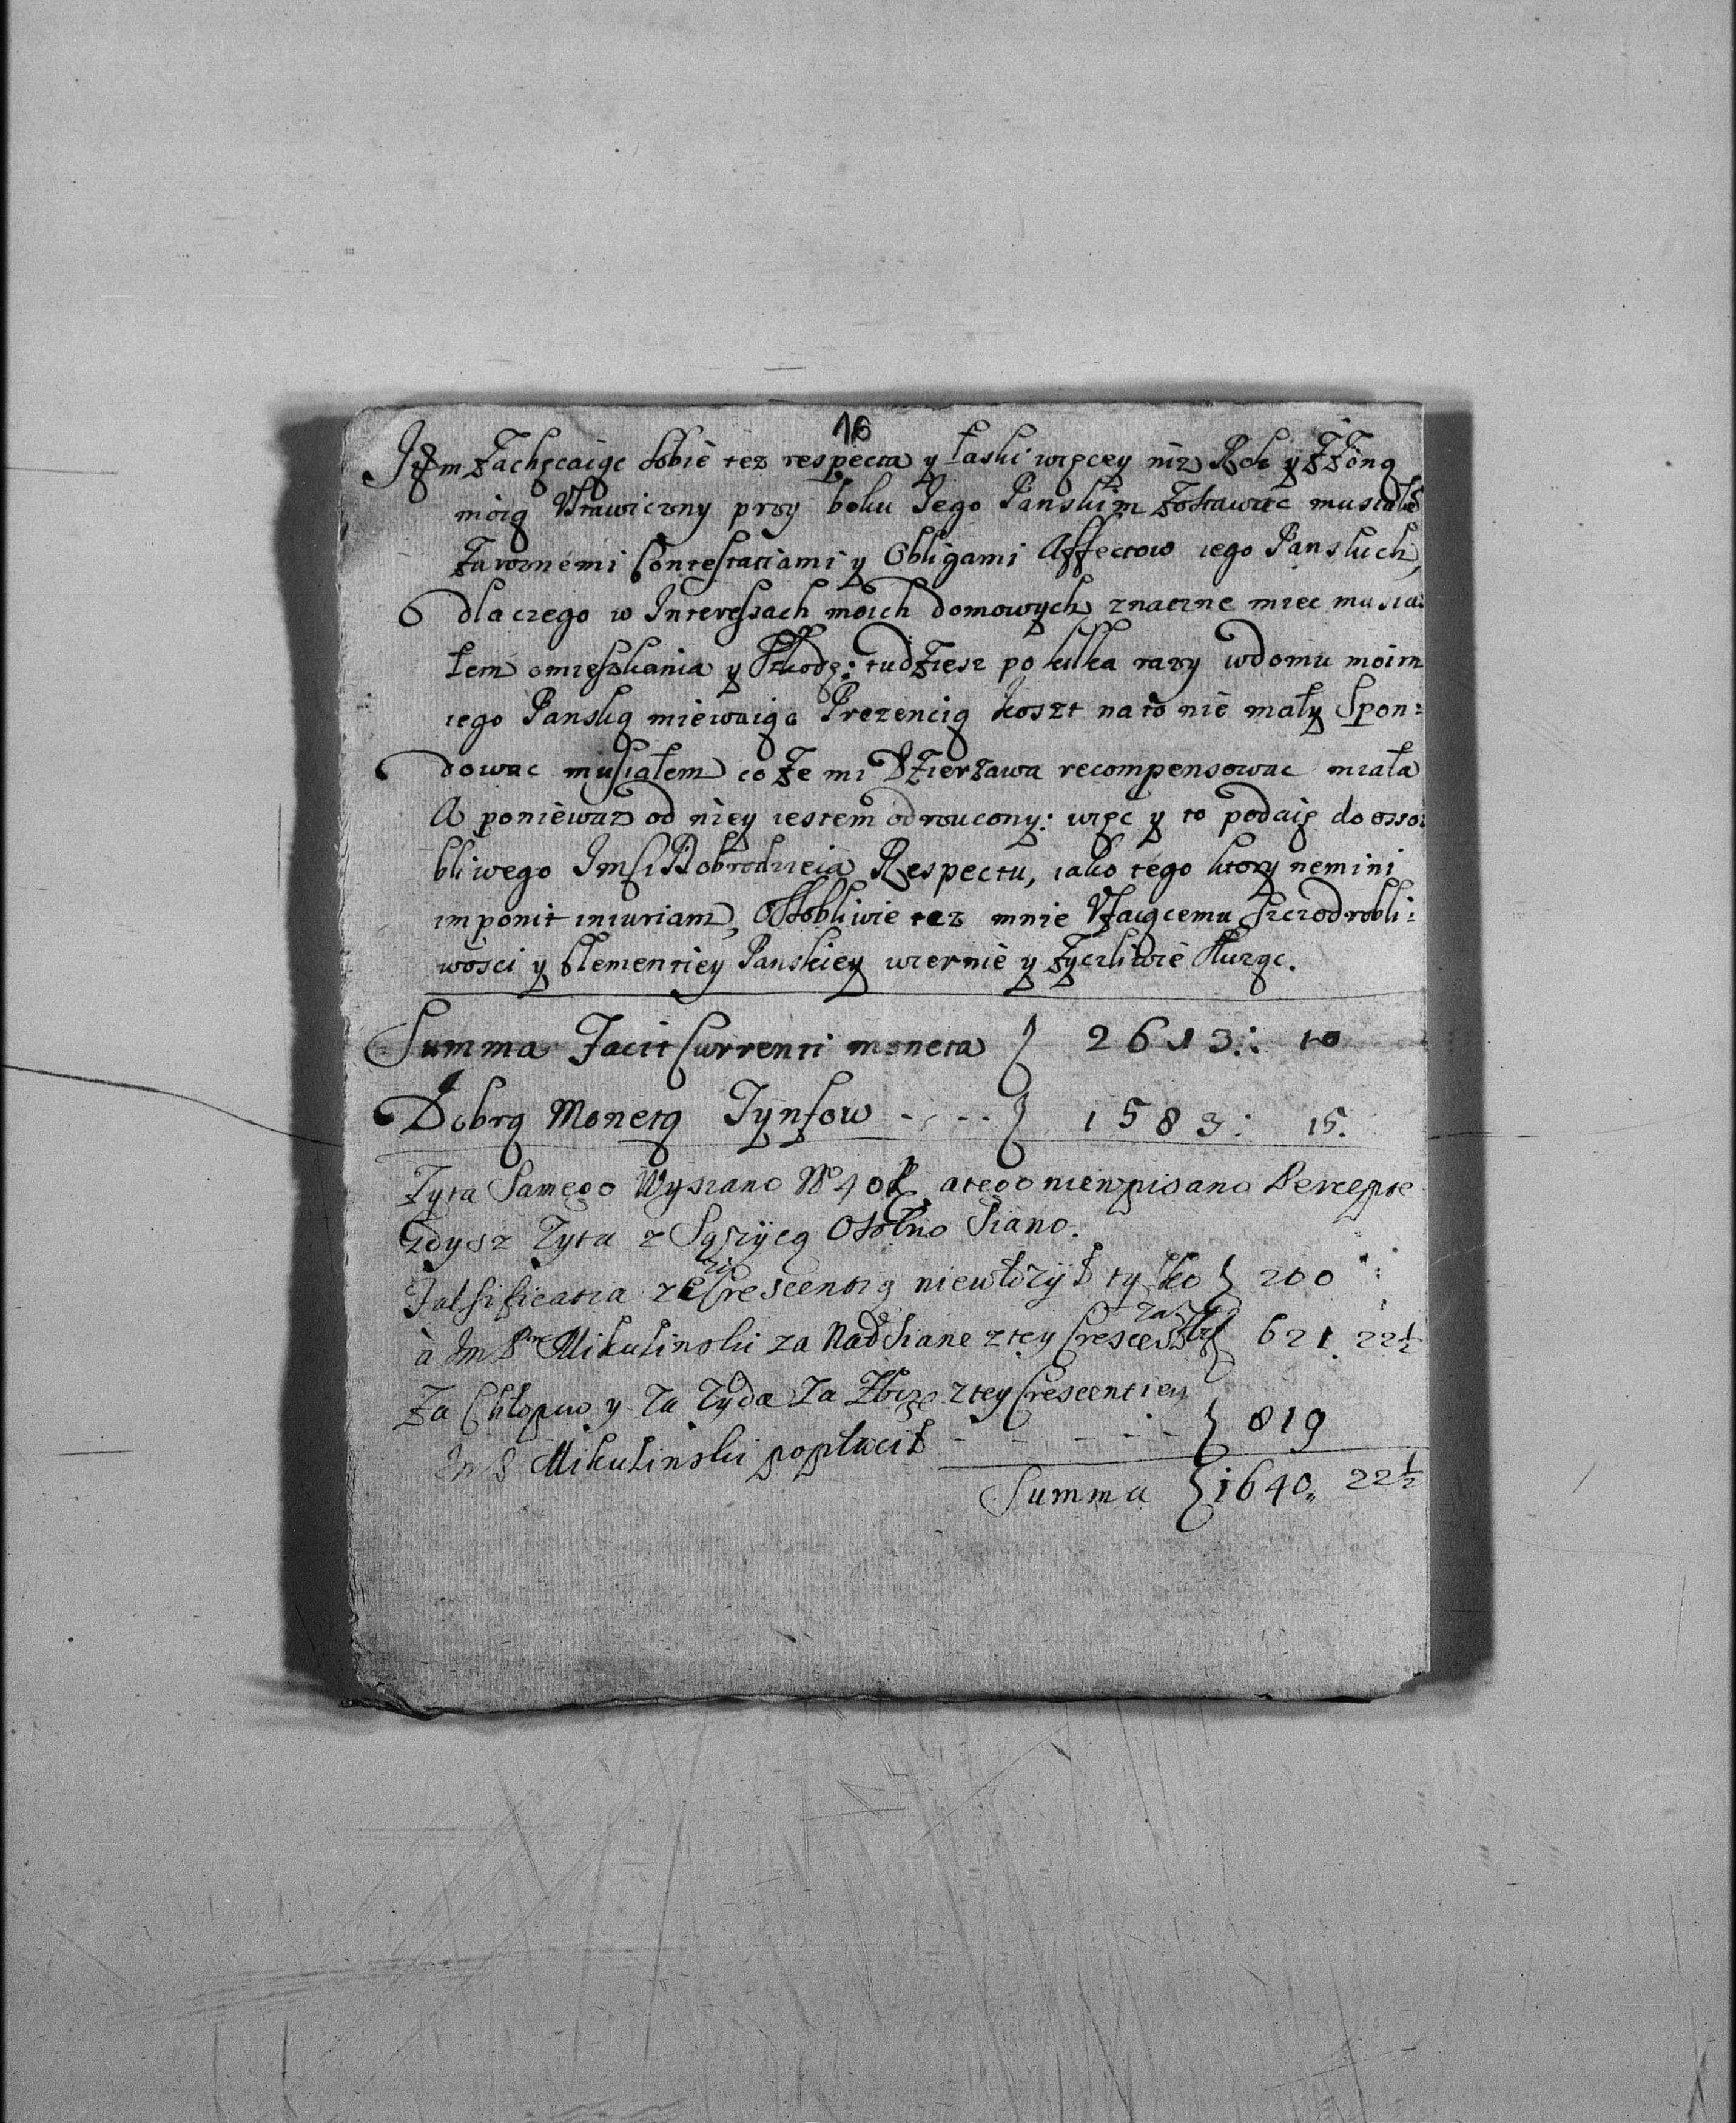 16
Itẽm Zachęcaiąc sobie tez respecta y łaski więcey niz Rok y z Zoną
moią Ustawiczny przy boku Jego Panskim Zostawac musiałẽ
Zawornemi Contestatiami y Obligami Affectow iego Panskich,
dla czego w Interessach moich domowych znaczne miec musia=
łem omieszkania y Szkodę: tudziesz po kilka razy w domu moim
iego Panską miewaiąc Prezencią koszt na to nie mały Spon=
dowac musiałem co Ze mi Dzierzawa recompensowac miała
A poniewaz od niey iestem odrzucony: więc y to podaię do osso=
bliwego Jmsci Dobrodzieia Respectu, iako tego ktory nemini
imponit iniuriam, Ossobliwie tez mnie Ufaiącemu Szczodrobli=
wosci y Clementiey Panskiey wiernie y zyczliwie Służąc.
Summa Facit Currenti moneta } 2613: 10
Dobrą Monetą Tynfow - - - } 1583: 15.
Zyta Samego Wysiano No 40 a tego nie wpisano Percepte
Gdysz Zyta z Sąszycą Osobno Siano.
Falsificatia ze Crescentią niewłozył tylko } 200
à Jm Pn Mikulinski za Nad Siane z tey Crescentij } 621. 22½
Za Chłopow y Za Zyda Za Zboze z tey Crescentiey
Jm P Mikulinski popłacił - - - - - } 819
Summa } 1640,, 22½